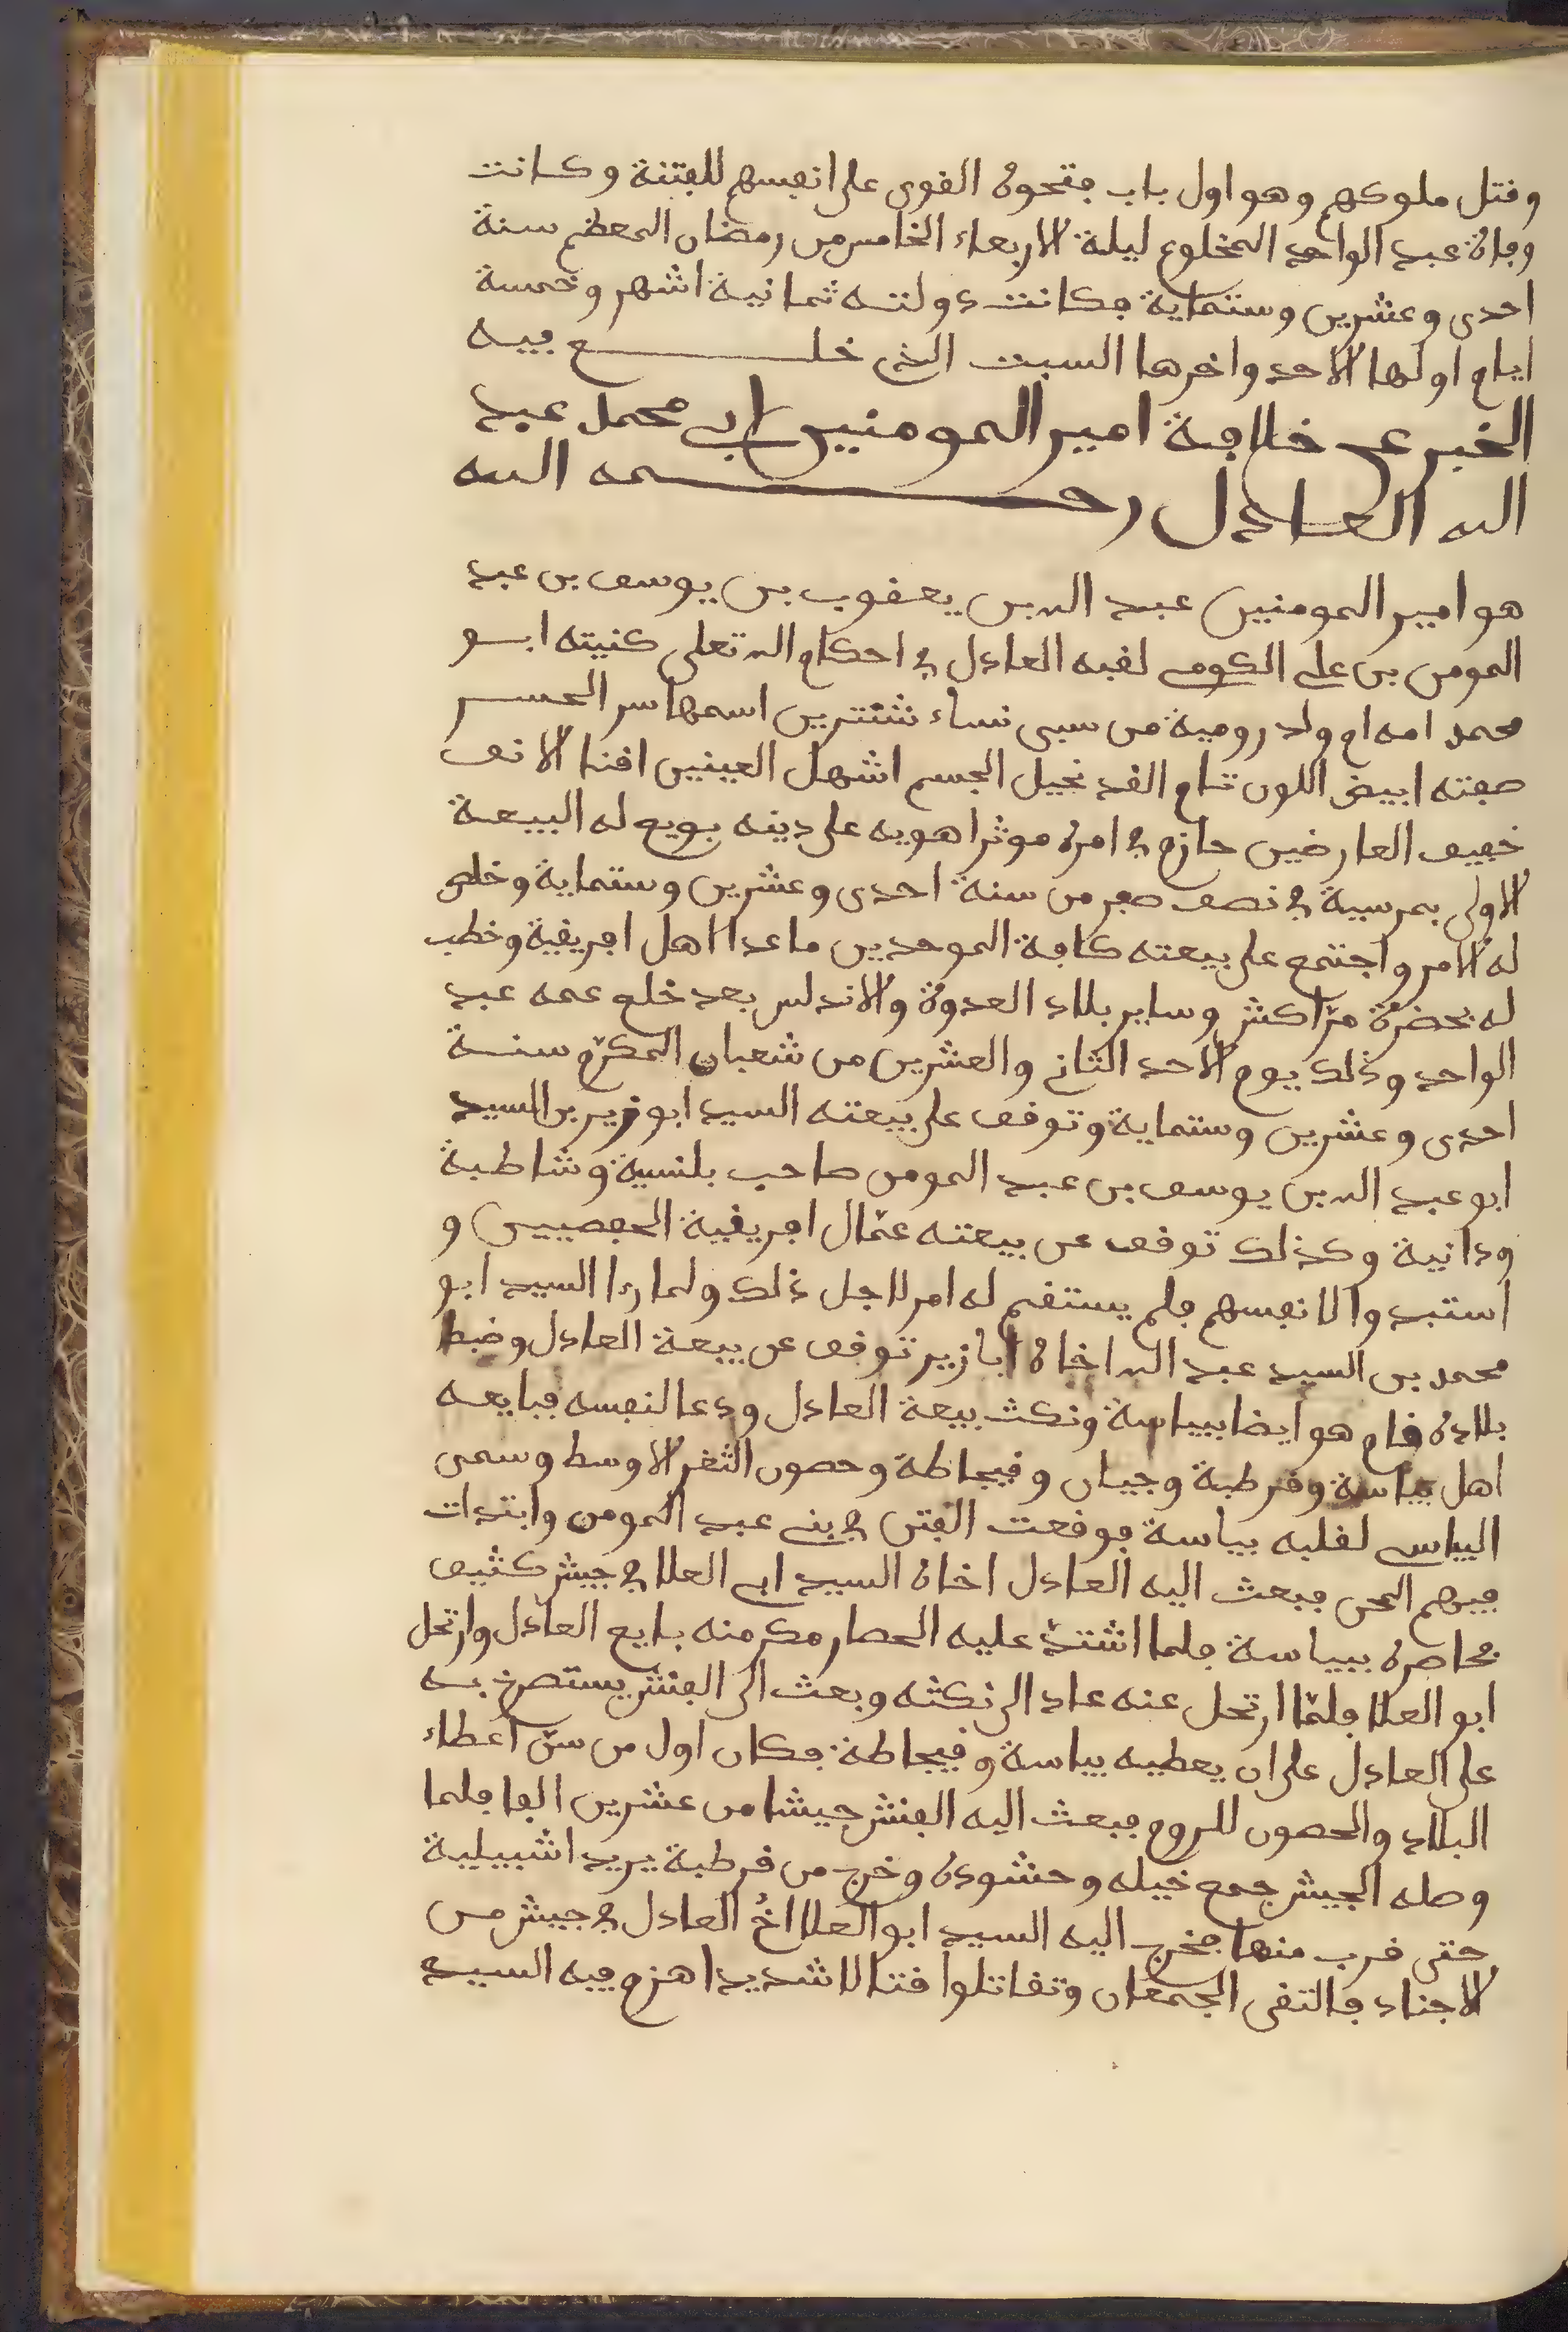 وقتل ملوكهم وهو اول باب فتحوه القوى على انفسهم للفتنة وكانت
وفاة عبد الواحد المخلوع ليلة الاربعاء الخامس من رمضان المعظم سنة
احدى وعشرين وستماية فكانت دولته ثمانية اشهر وخمسة
ايام اولها الاحد واخرها السبت الذى خلع فيه
الخبر عن خلافة امير المومنين ابى محمد عبد
الله العادل رحمه الله
هو امير المومنين عبد الله بن يعقوب بن يوسف بن عبد
المومن بن على الكومى لقبه العادل فى احكام الله تعلى كنيته ابو
محمد امه ام ولد رومية من سبى نساء شنترين اسمها سر الحسن
صفته ابيض اللون تام القد نحيل الجسم اشهل العينين اقنا الانف
خفيف العارضين حازم فى امره موثرا هويه على دينه بويع له البيعة
الاولى بمرسية فى نصف صفر من سنة احدى وعشرين وستماية وخلص
له الامر واجتمع على بيعته كافة الموحدين ما عدا اهل افريقية وخطب
له بحضرة مراكش وساير بلاد العدوة والاندلس بعد خلع عمه عبد
الواحد وذلك يوم الاحد الثانى والعشرين من شعبان المكرم سنة
احدى وعشرين وستماية وتوقف على بيعته السيد ابو زير بن السيد
ابو عبد الله بن يوسف بن عبد المومن صاحب بلنسية وشاطبة
ودانية وكذلك توقف عن بيعته عمّال افريقية الحفصيين و
استبدوا لانفسهم فلم يستقم له امر لاجل ذلك ولما راا السيد ابو
محمد بن السيد عبد الله اخاه ابا زير توقف عن بيعة العادل وضبط
بلاده قام هو ايضا ببياسة ونكث بيعة العادل ودعا لنفسه فبايعه
اهل بياسة وقرطبة وجيان وقيجاطة وحصون الثغر الاوسط وسمى
البياسى لقلبه بياسة فوقعت الفتن فى بنى عبد المومن وابتدات
فيهم المحن فبعث اليه العادل اخاه السيد ابى العلا فى جيش كثيف
فحاصره ببياسة فلما اشتدّ عليه الحصار مكر منه بايع العادل وارتحل
ابو العلا فلمّا ارتحل عنه عاد الى نكثه وبعث الى الفنش يستصرخ به
على العادل على ان يعطيه بياسة وقيجاطة فكان اول من سنّ اعطاء
البلاد والحصون للروم فبعث اليه الفنش جيشا من عشرين الفا فلما
وصله الجيش جمع خيله وحشوده وخرج من قرطبة يريد اشبيلية
حتى قرب منها فخرج اليه السيد ابو العلا اخُ العادل فى جيش من
الاجناد فالتقى الجمعان وتقاتلوا قتالا شديدا هزم فيه السيد